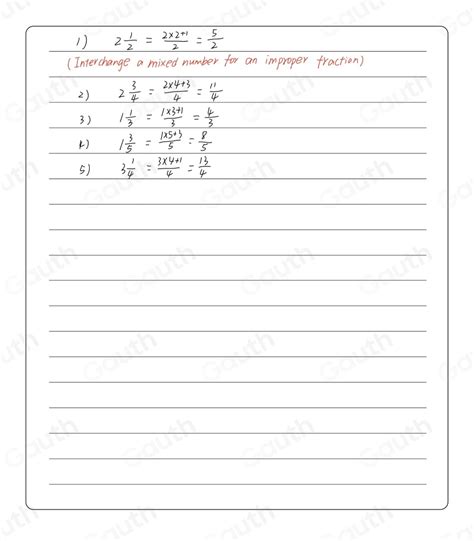 1) 2 1/2 = 2×2+1/2 = 5/2
(Interchange a mixed number for an improper fraction)
2) 2 3/4 = 2×4+3/4 = 11/4
3) 1 1/3 = 1×3+1/3 = 4/3
4) 1 3/5 = 1×5+3/5 = 8/5
5) 3 1/4 = 3×4+1/4 = 13/4
Gauth